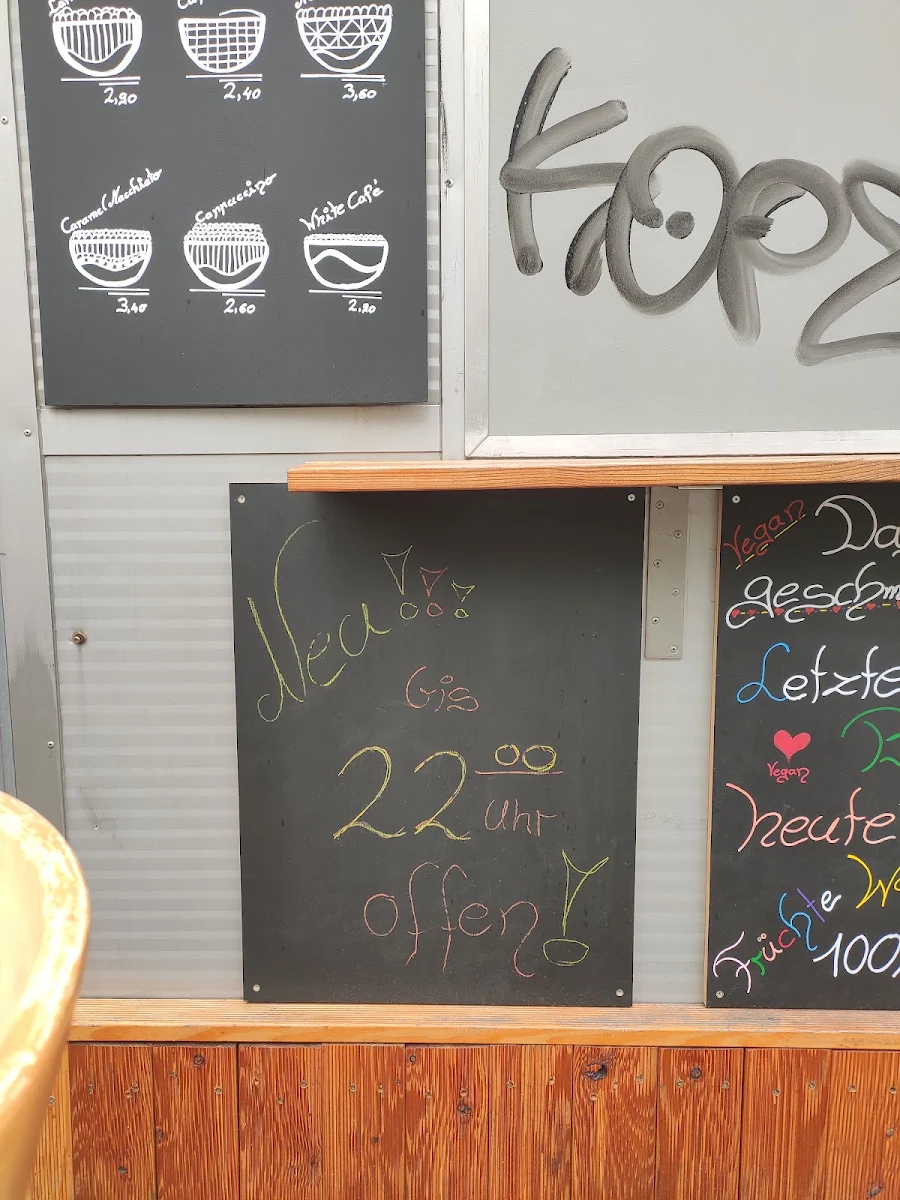 2,90 2,40 3,60
Caramel Macchiato Cappuccino White Café
3,40 2,60 2,20
Neu!!!
Bis
22 00 Uhr
offen!
Vegan Da
geschm
Letzte
Vegan
heute
Früchte
100%